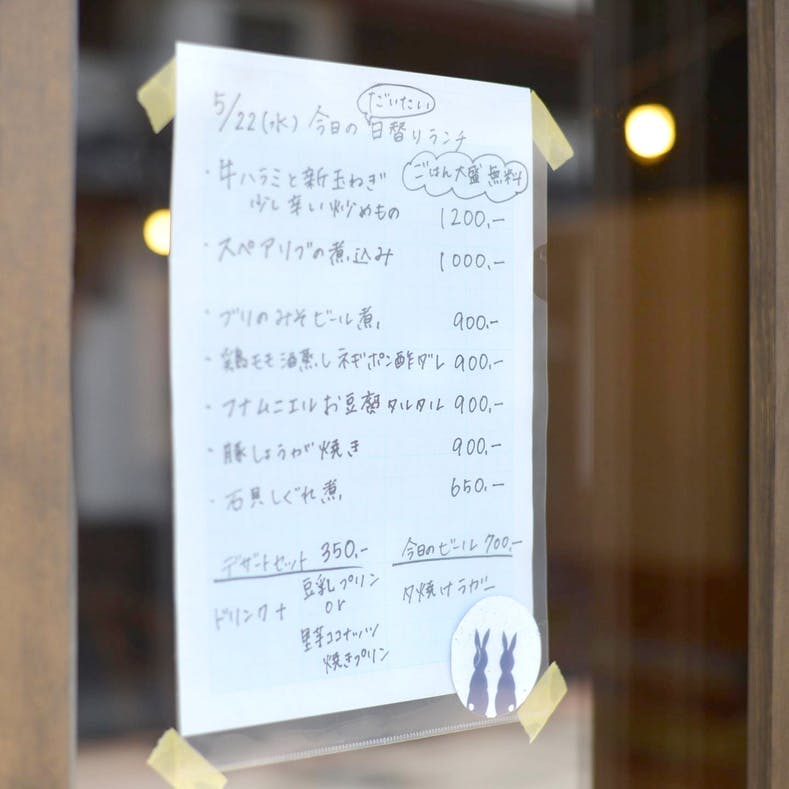 だいたい
5/22(水) 今日の日替りランチ
ごはん大盛無料
・牛ハラミと新玉ねぎ
少し辛い炒めもの 1200.-
・スペアリブの煮込み 1000.-
・ブリのみそビール煮 900.-
・鶏モモ酒蒸しネギポン酢ダレ 900.-
・フナムニエルお豆腐タルタル 900.-
・豚しょうが焼き 900.-
・石貝しぐれ煮 650.-
デザートセット 350.-
ドリンク+
豆乳プリン
or
ココナッツ
焼きプリン
今日のビール 700.-
夕焼けラガー